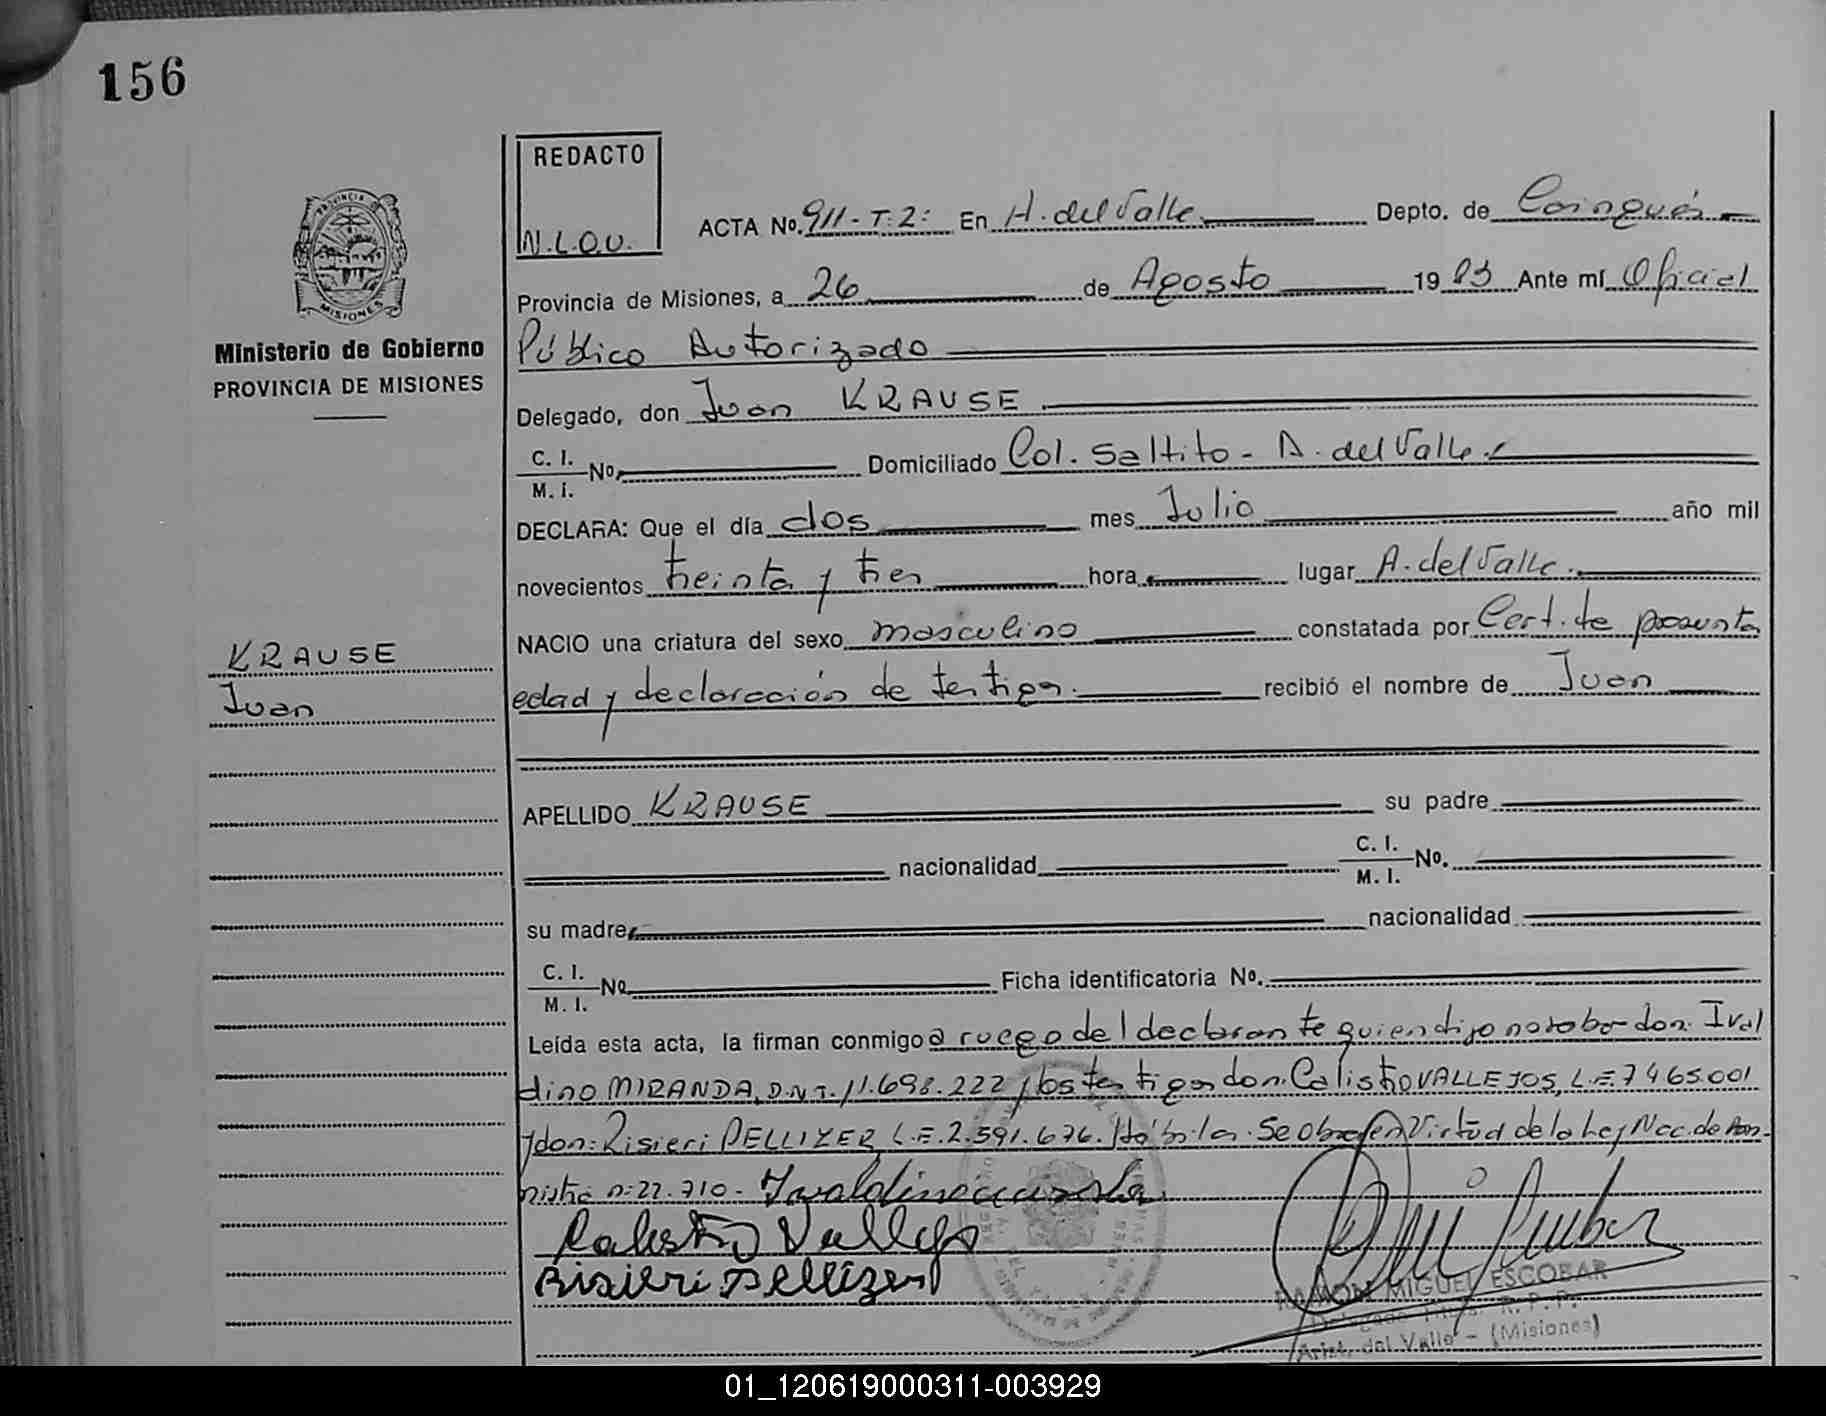 156
REDACTO
N.L.O.U.
ACTA No. 911-T.2: En A. del Valle Depto. de Cainguás
Provincia de Misiones, a 26 de Agosto 1983 Ante mí Oficial
Público Autorizado
Delegado, don Juan KRAUSE
C. I. M. I. No. Domiciliado Col. Saltito - A. del Valle
DECLARA: Que el día dos mes Julio año mil
novecientos treinta y tres hora lugar A. del Valle.
NACIO una criatura del sexo masculino constatada por Cert. de presunta
edad y declaración de testigos. recibió el nombre de Juan
APELLIDO KRAUSE su padre
nacionalidad C. I. M. I. No.
su madre nacionalidad
C. I. M. I. No Ficha identificatoria No.
Leída esta acta, la firman conmigo a ruego del declarante quien dijo no don. Ival
dino MIRANDA, D.N.I. 11.698.222 y los testigos don. Calisto VALLEJOS, L.E. 7465.001
y don: Risieri PELLIZER, L.E. 2.591.676. Hábiles. Se obra en Virtud de la Ley Nac. de Am-
nistía n: 22.710-
Calisto Vallejos
Risieri Pellizer
RAMON MIGUEL ESCOBAR
Delegado R.P.P.
Arist. del Valle - (Misiones)
PROVINCIA DE
MISIONES
Ministerio de Gobierno
PROVINCIA DE MISIONES
KRAUSE
Juan
01_120619000311-003929